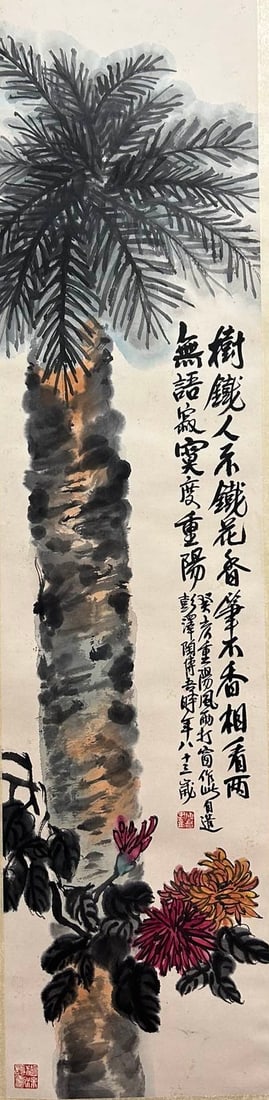 樹鐵人不鐵花香筆不香相看兩
無語寂寞度重陽
癸亥重陽風雨打窗作此自遣
彭澤陶博吾時年八十三歲